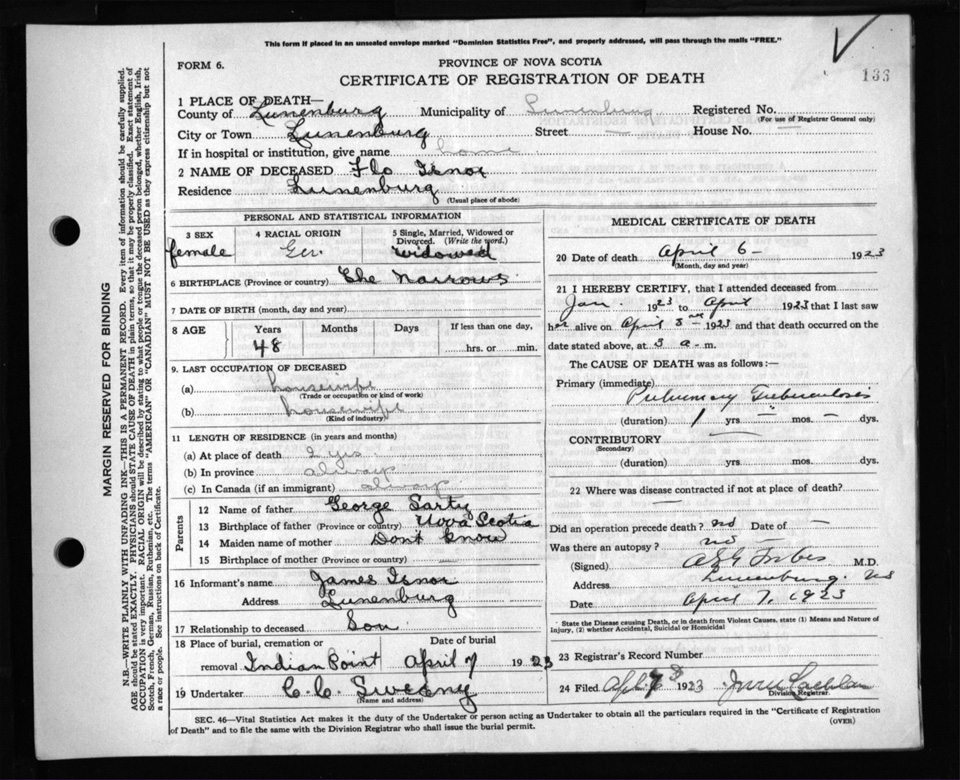 This form if placed in an unsealed envelope marked "Dominion Statistics Free", and properly addressed, will pass through the mails "FREE."
FORM 6.
PROVINCE OF NOVA SCOTIA
133
CERTIFICATE OF REGISTRATION OF DEATH
1 PLACE OF DEATH—
County of Lunenburg Municipality of Lunenburg Registered No. —
(For use of Registrar General only)
City or Town Lunenburg Street — House No. —
If in hospital or institution, give name home
2 NAME OF DECEASED Flo Isnor
Residence Lunenburg
(Usual place of abode)
PERSONAL AND STATISTICAL INFORMATION
3 SEX 4 RACIAL ORIGIN 5 Single, Married, Widowed or Divorced. (Write the word.)
female Ger. widowed
6 BIRTHPLACE (Province or country) The Narrows
7 DATE OF BIRTH (month, day and year)
8 AGE Years Months Days If less than one day,
48 hrs. or min.
9. LAST OCCUPATION OF DECEASED
(a) housewife
(Trade or occupation or kind of work)
(b) housewife
(Kind of industry)
11 LENGTH OF RESIDENCE (in years and months)
(a) At place of death 2 yrs.
(b) In province always
(c) In Canada (if an immigrant) always
Parents
12 Name of father George Sarty
13 Birthplace of father (Province or country) Nova Scotia
14 Maiden name of mother Dont know
15 Birthplace of mother (Province or country) —
16 Informant's name James Isnor
Address Lunenburg
17 Relationship to deceased Son
18 Place of burial, cremation or removal Date of burial
Indian Point April 7 1923
19 Undertaker C. C. Sweeny
(Name and address)
MEDICAL CERTIFICATE OF DEATH
20 Date of death April 6 — 1923
(Month, day and year)
21 I HEREBY CERTIFY, that I attended deceased from
Jan. 1923 to April 1923 that I last saw
her alive on April 3rd — 1923 and that death occurred on the
date stated above, at 3 a — m.
The CAUSE OF DEATH was as follows:—
Primary (immediate) Pulmonary Tuberculosis
(duration) 1 yrs — mos. — dys.
CONTRIBUTORY —
(Secondary)
(duration) yrs. mos. dys.
22 Where was disease contracted if not at place of death?
—
Did an operation precede death? no Date of —
Was there an autopsy? no —
(Signed) Forbes M.D.
Address Lunenburg. NS
Date April 7, 1923
State the Disease causing Death, or in death from Violent Causes, state (1) Means and Nature of
Injury, (2) whether Accidental, Suicidal or Homicidal
23 Registrar's Record Number
24 Filed April 1923
Division Registrar.
SEC. 46—Vital Statistics Act makes it the duty of the Undertaker or person acting as Undertaker to obtain all the particulars required in the "Certificate of Registration
of Death" and to file the same with the Division Registrar who shall issue the burial permit.
(OVER)
MARGIN RESERVED FOR BINDING
N.B.—WRITE PLAINLY WITH UNFADING INK—THIS IS A PERMANENT RECORD. Every item of information should be carefully supplied.
AGE should be stated EXACTLY. PHYSICIANS should STATE CAUSE OF DEATH in plain terms, so that it may be properly classified. Exact statement of
OCCUPATION is very important. RACIAL ORIGIN will be described by stating to what people or tongue the deceased person belonged, whether English, Irish,
Scotch, French, German, Russian, Ruthenian, etc. The terms "AMERICAN" OR "CANADIAN" MUST NOT BE USED as they express citizenship but not
a race or people. See instructions on back of Certificate.